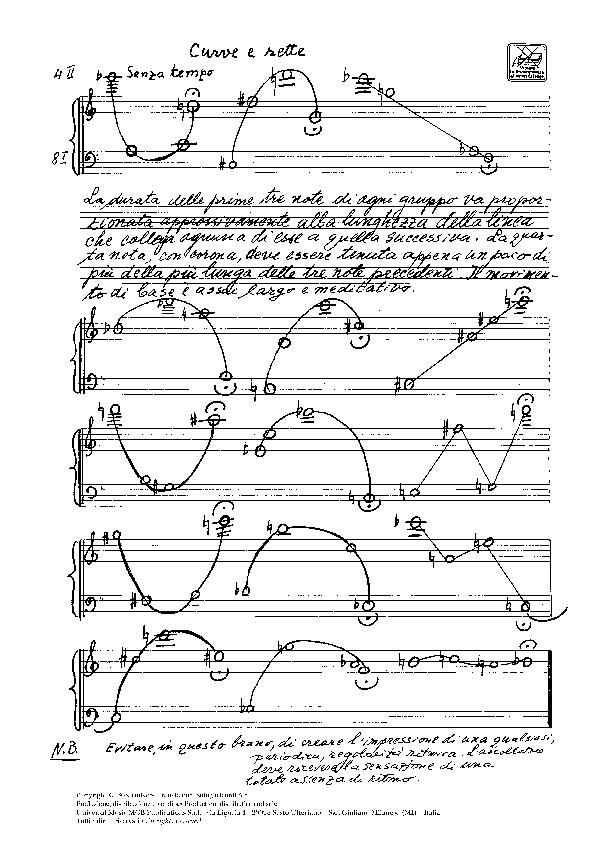 Curve e rette
4 II
Senza tempo
8 I
La durata delle prime tre note di ogni gruppo va propor-
zionata approssivamente alla lunghezza della linea
che collega ognuna di esse a quella successiva. La quar-
ta nota, con corona, deve essere tenuta appena un poco di
più della più lunga delle tre note precedenti. Il movimen-
to di base è assai largo e meditativo.
N.B. Evitare, in questo brano, di creare l'impressione di una qualsiasi,
periodica, regolarità ritmica. L'ascoltatore
deve ricevere la sensazione di una
totale assenza di ritmo.
Universal Music MGB Publications